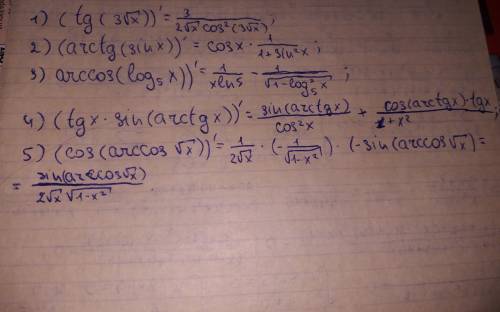 1) (tg(3√x))' = 3/(2√x cos²(3√x));
2) (arctg(sinx))' = cosx · 1/(1+sin²x);
3) arccos(log₅x))' = 1/(xln5) - 1/√(1-log₅²x);
4) (tgx · sin(arctgx))' = sin(arctgx)/cos²x + cos(arctgx)·tgx/(1+x²);
5) (cos(arccos√x))' = 1/(2√x) · (-1/√(1-x²)) · (-sin(arccos√x) =
= sin(arccos√x)/(2√x √(1-x²))